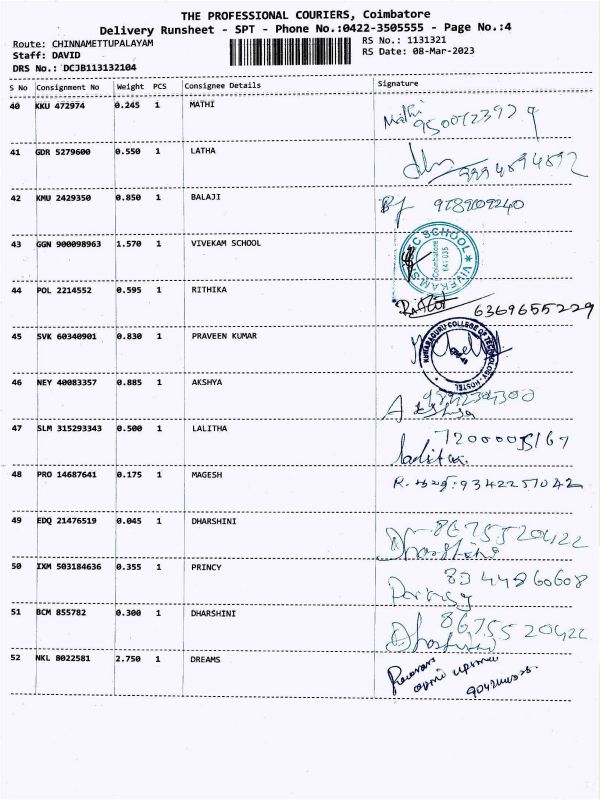 THE PROFESSIONAL COURIERS, Coimbatore
Delivery Runsheet - SPT - Phone No.:0422-3505555 - Page No.:4
Route: CHINNAMETTUPALAYAM RS No.: 1131321
Staff: DAVID RS Date: 08-Mar-2023
DRS No.: DCJB113132104
S No Consignment No Weight PCS Consignee Details Signature
40 KKU 472974 0.245 1 MATHI Mathi
41 GDR 5279600 0.550 1 LATHA
42 KMU 2429350 0.850 1 BALAJI 9789109240
43 GGN 900098963 1.570 1 VIVEKAM SCHOOL
VIVEKAM SCHOOL Coimbatore 641 035
44 POL 2214552 0.595 1 RITHIKA
6369655229
45 SVK 60340901 0.830 1 PRAVEEN KUMAR
KUMARAGURU COLLEGE OF TECHNOLOGY-HOSTEL
46 NEY 40083357 0.885 1 AKSHYA
47 SLM 315293343 0.500 1 LALITHA
Lalitha
48 PRO 14687641 0.175 1 MAGESH
49 EDQ 21476519 0.045 1 DHARSHINI 8675520422
Dharshini
50 IXM 503184636 0.355 1 PRINCY 8344860608
51 BCM 855782 0.300 1 DHARSHINI 8675520422
Dharshini
52 NKL 8022581 2.750 1 DREAMS